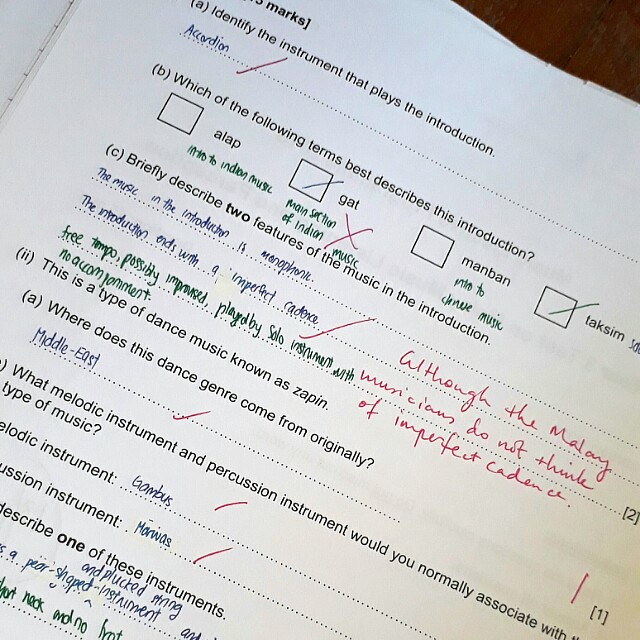 marks]
(a) Identify the instrument that plays the introduction.
Accordion
(b) Which of the following terms best describes this introduction?
alap
gat
manban
taksim
intro to indian music
main section
of indian
music
intro to
chinese music
(c) Briefly describe two features of the music in the introduction.
The music in the introduction is monophonic.
The introduction ends with a imperfect cadence.
free tempo, possibly improvised, played by solo instrument with
no accompaniment.
Although the Malay
musicians do not think
of imperfect cadence.
[2]
(ii) This is a type of dance music known as zapin.
(a) Where does this dance genre come from originally?
Middle-East
[1]
) What melodic instrument and percussion instrument would you normally associate with
type of music?
elodic instrument: Gambus
ussion instrument: Marwas
describe one of these instruments.
a pear-shaped instrument and
and plucked string
hort neck and no fret